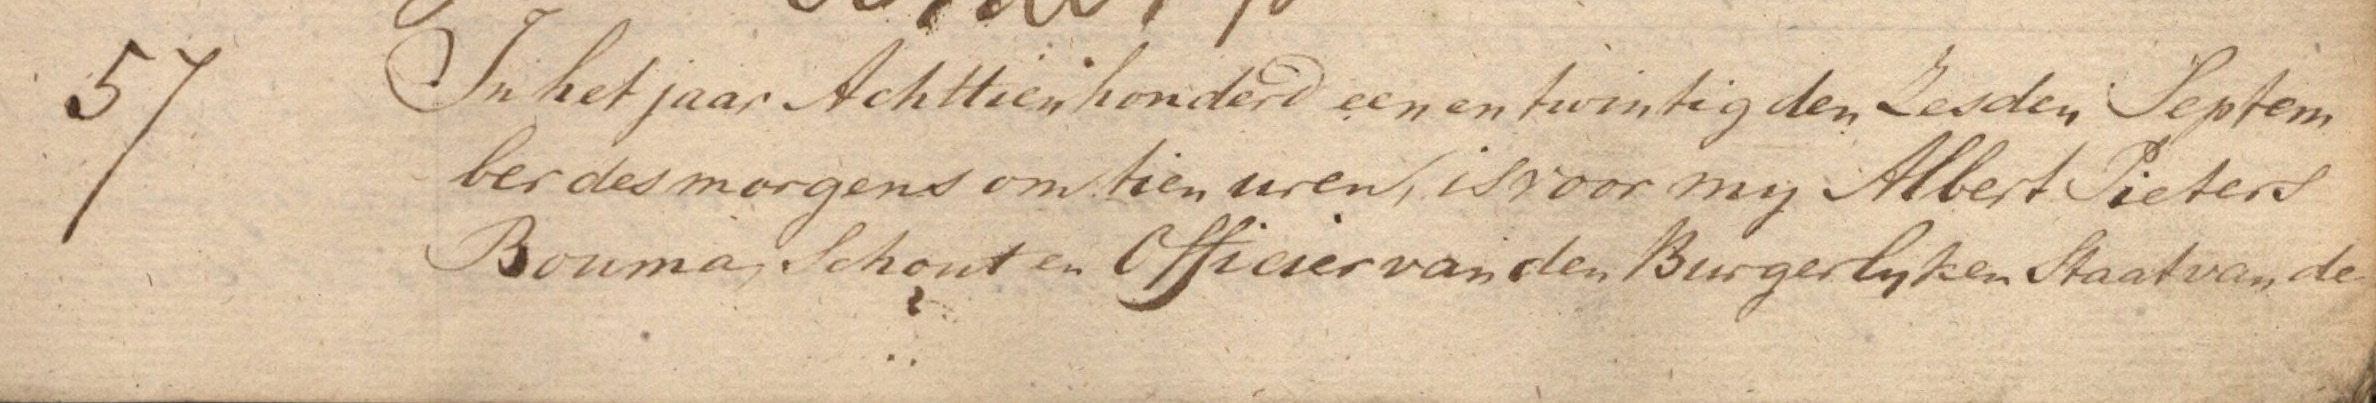 57
In het jaar Achttienhonderd eenentwintig den Zesden Septem
ber des morgens om tien uren, is voor my Albert Pieters
Bouma, Schout en Officier van den Burgerlyken Staat van de